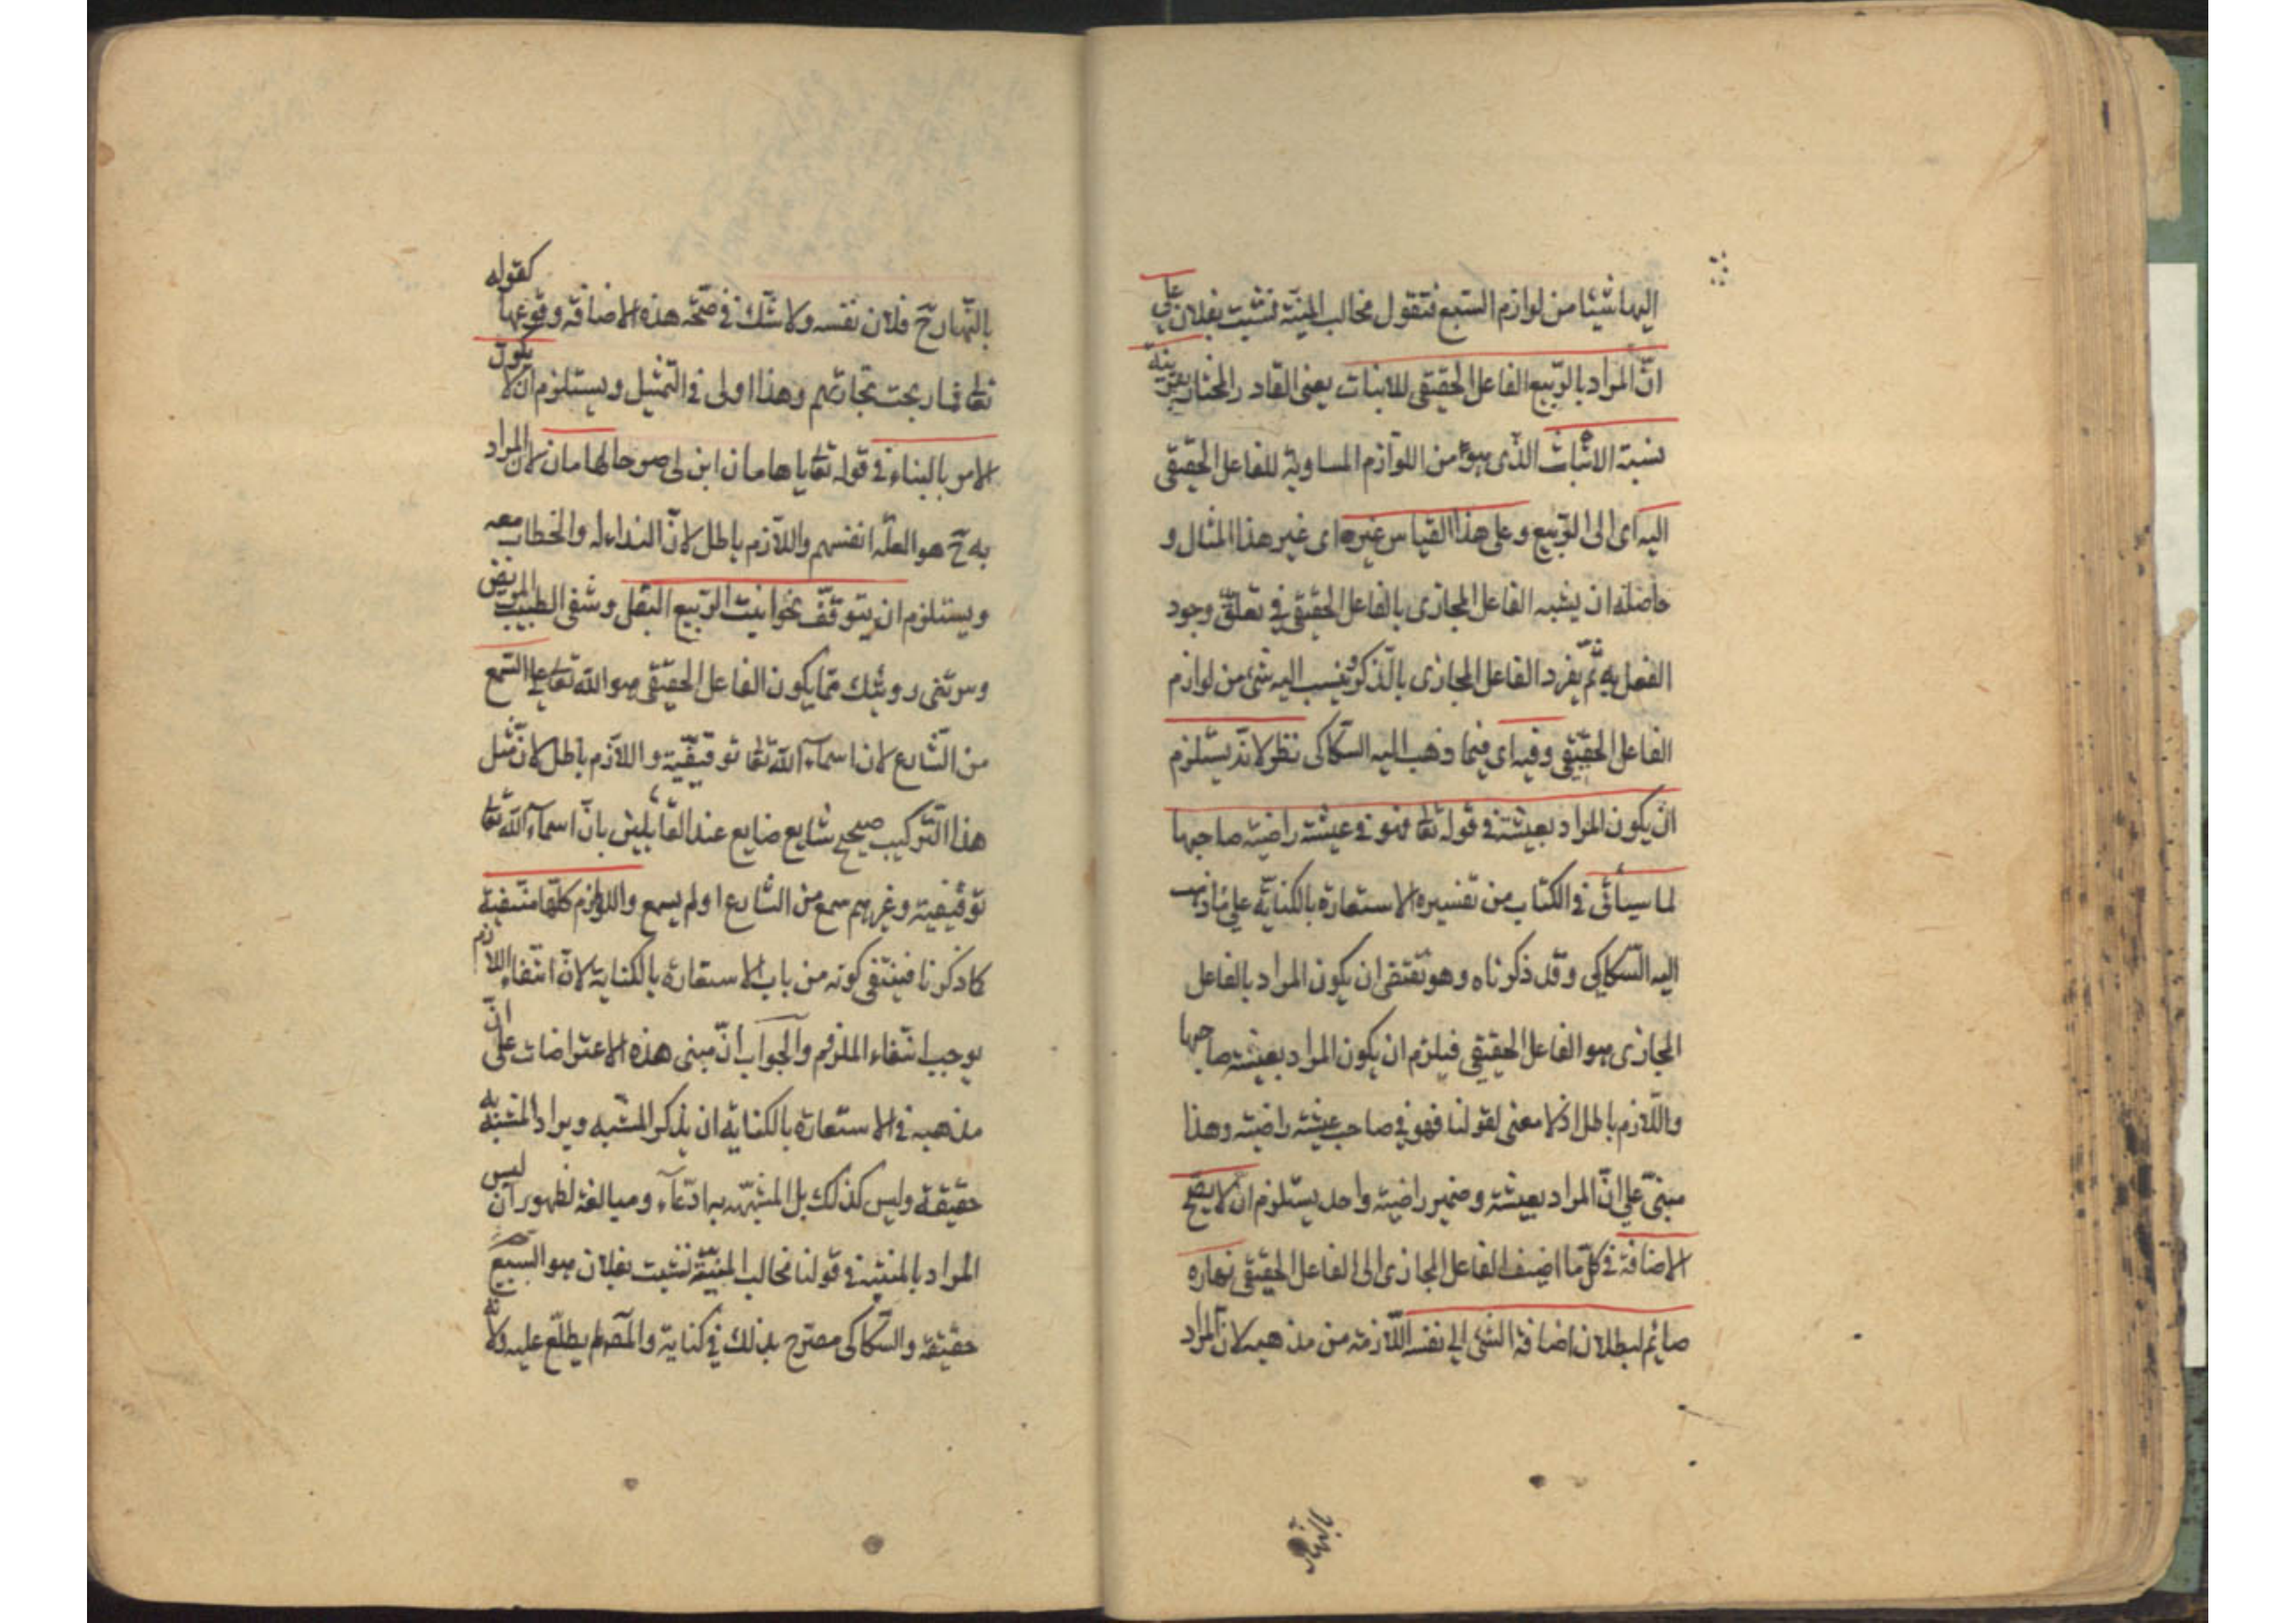 اليها شيئا من لوازم السبع فتقول مخالب المنية نشبت بفلان على
انّ المراد بالربيع الفاعل الحقيقى للانبات يعنى القادر المختار بقرينة
نسبة الانبات الذى هو من اللوازم المساوية للفاعل الحقيقى
اليه اى الى الربيع وعلى هذا القياس غيره اى غير هذا المثال و
حاصله ان يشبه الفاعل المجازى بالفاعل الحقيقى فى تعلق وجود
الفعل به ثمّ يفرد الفاعل المجازى بالذكر وينسب اليه شئ من لوازم
الفاعل الحقيقى وفيه اى فيما ذهب اليه السكاكى نظر لانه يستلزم
ان يكون المراد بعيشة فى قوله تعا فهو فى عيشة راضية صاحبها
لما سيأتى فى الكتاب من تفسيره الاستعارة بالكناية على مذهب
اليه السكاكى وقد ذكرناه وهو تقتقى ان يكون المراد بالفاعل
المجازى هو الفاعل الحقيقى فيلزم ان يكون المراد بعيشة صاحبها
واللازم باطل اذ لا معنى لقولنا فهو فى صاحب عيشة راضية وهذا
مبنىّ على انّ المراد بعيشة وضمير راضية واحد يستلزم ان لا يصح
الاضافة فى كل ما اضيف الفاعل المجازى الى الفاعل الحقيقى نهاره
صايم لبطلان اضافة الشئ الى نفسه اللازمة من مذهبه لان المراد
بالنهار
بالنهار ح فلان نفسه ولا شك فى صحة هذه الاضافة ووقوعها كقوله
تعا فما ربحت تجارتهم وهذا اولى فى التمثيل ويستلزم ان لا يكون
الامر بالبناء فى قوله تعا يا هامان ابن لى صرحا لهامان لان المراد
به ح هو العملة انفسهم واللازم باطل لانّ النداء له والخطاب معه
ويستلزم ان يتوقف نحو انبت الربيع البقل وشفى الطبيب المريض
وسرتنى رويتك ممّا يكون الفاعل الحقيقى هو الله تعا على السمع
من الشارع لان اسماء الله تعا توقيفية واللازم باطل لان مثل
هذا التركيب صحيح شايع ضايع عند القايلين بانّ اسماء الله تعا
توقيفية وغيرهم سمع من الشارع او لم يسمع واللوازم كلها منتفية
كما ذكرنا فينتفى كونه من باب الاستعارة بالكناية لانّ انتفاء اللازم
يوجب انتفاء الملزوم والجواب انّ مبنى هذه الاعتراضات على انّ
مذهبه فى الاستعارة بالكناية ان يذكر المشبه ويراد المشبه به
حقيقة وليس كذلك بل المشبه به ادّعاء ومبالغة لظهور ان ليس
المراد بالمنية فى قولنا مخالب المنية نشبت بفلان هو السبع
حقيقة والسكاكى مصرح بذلك فى كتابه والمصـ لم يطلع عليه ولانه